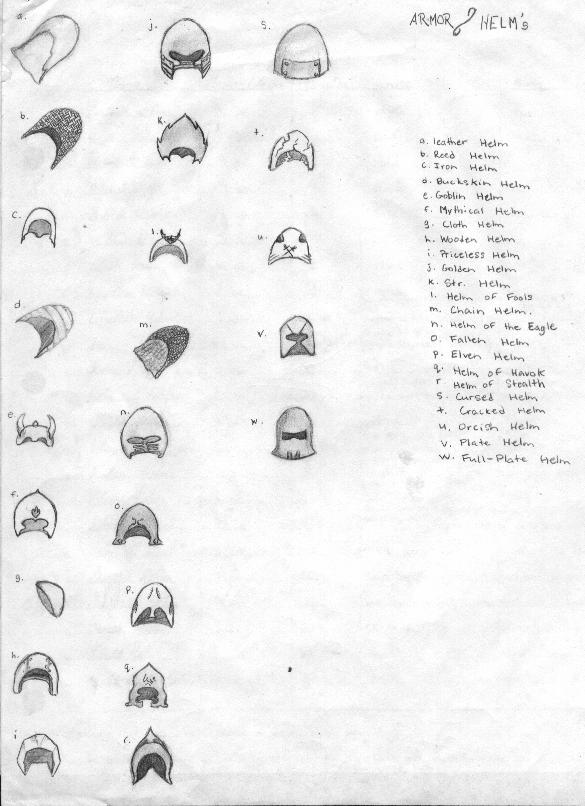 ARMOR HELM's
a. leather Helm
b. Reed Helm
c. Iron Helm
d. Buckskin Helm
e. Goblin Helm
f. Mythical Helm
g. Cloth Helm
h. Wooden Helm
i. Priceless Helm
j. Golden Helm
k. Str. Helm
l. Helm of Fools
m. Chain Helm.
n. Helm of the Eagle
o. Fallen Helm
p. Elven Helm
q. Helm of Havok
r. Helm of Stealth
s. Cursed Helm
t. Cracked Helm
u. Orcish Helm
v. Plate Helm
w. Full-Plate Helm
a.
b.
c.
d.
e.
f.
g.
h.
i
j.
k.
l.
m.
n.
o.
p.
q.
r.
s.
t.
u.
v.
w.